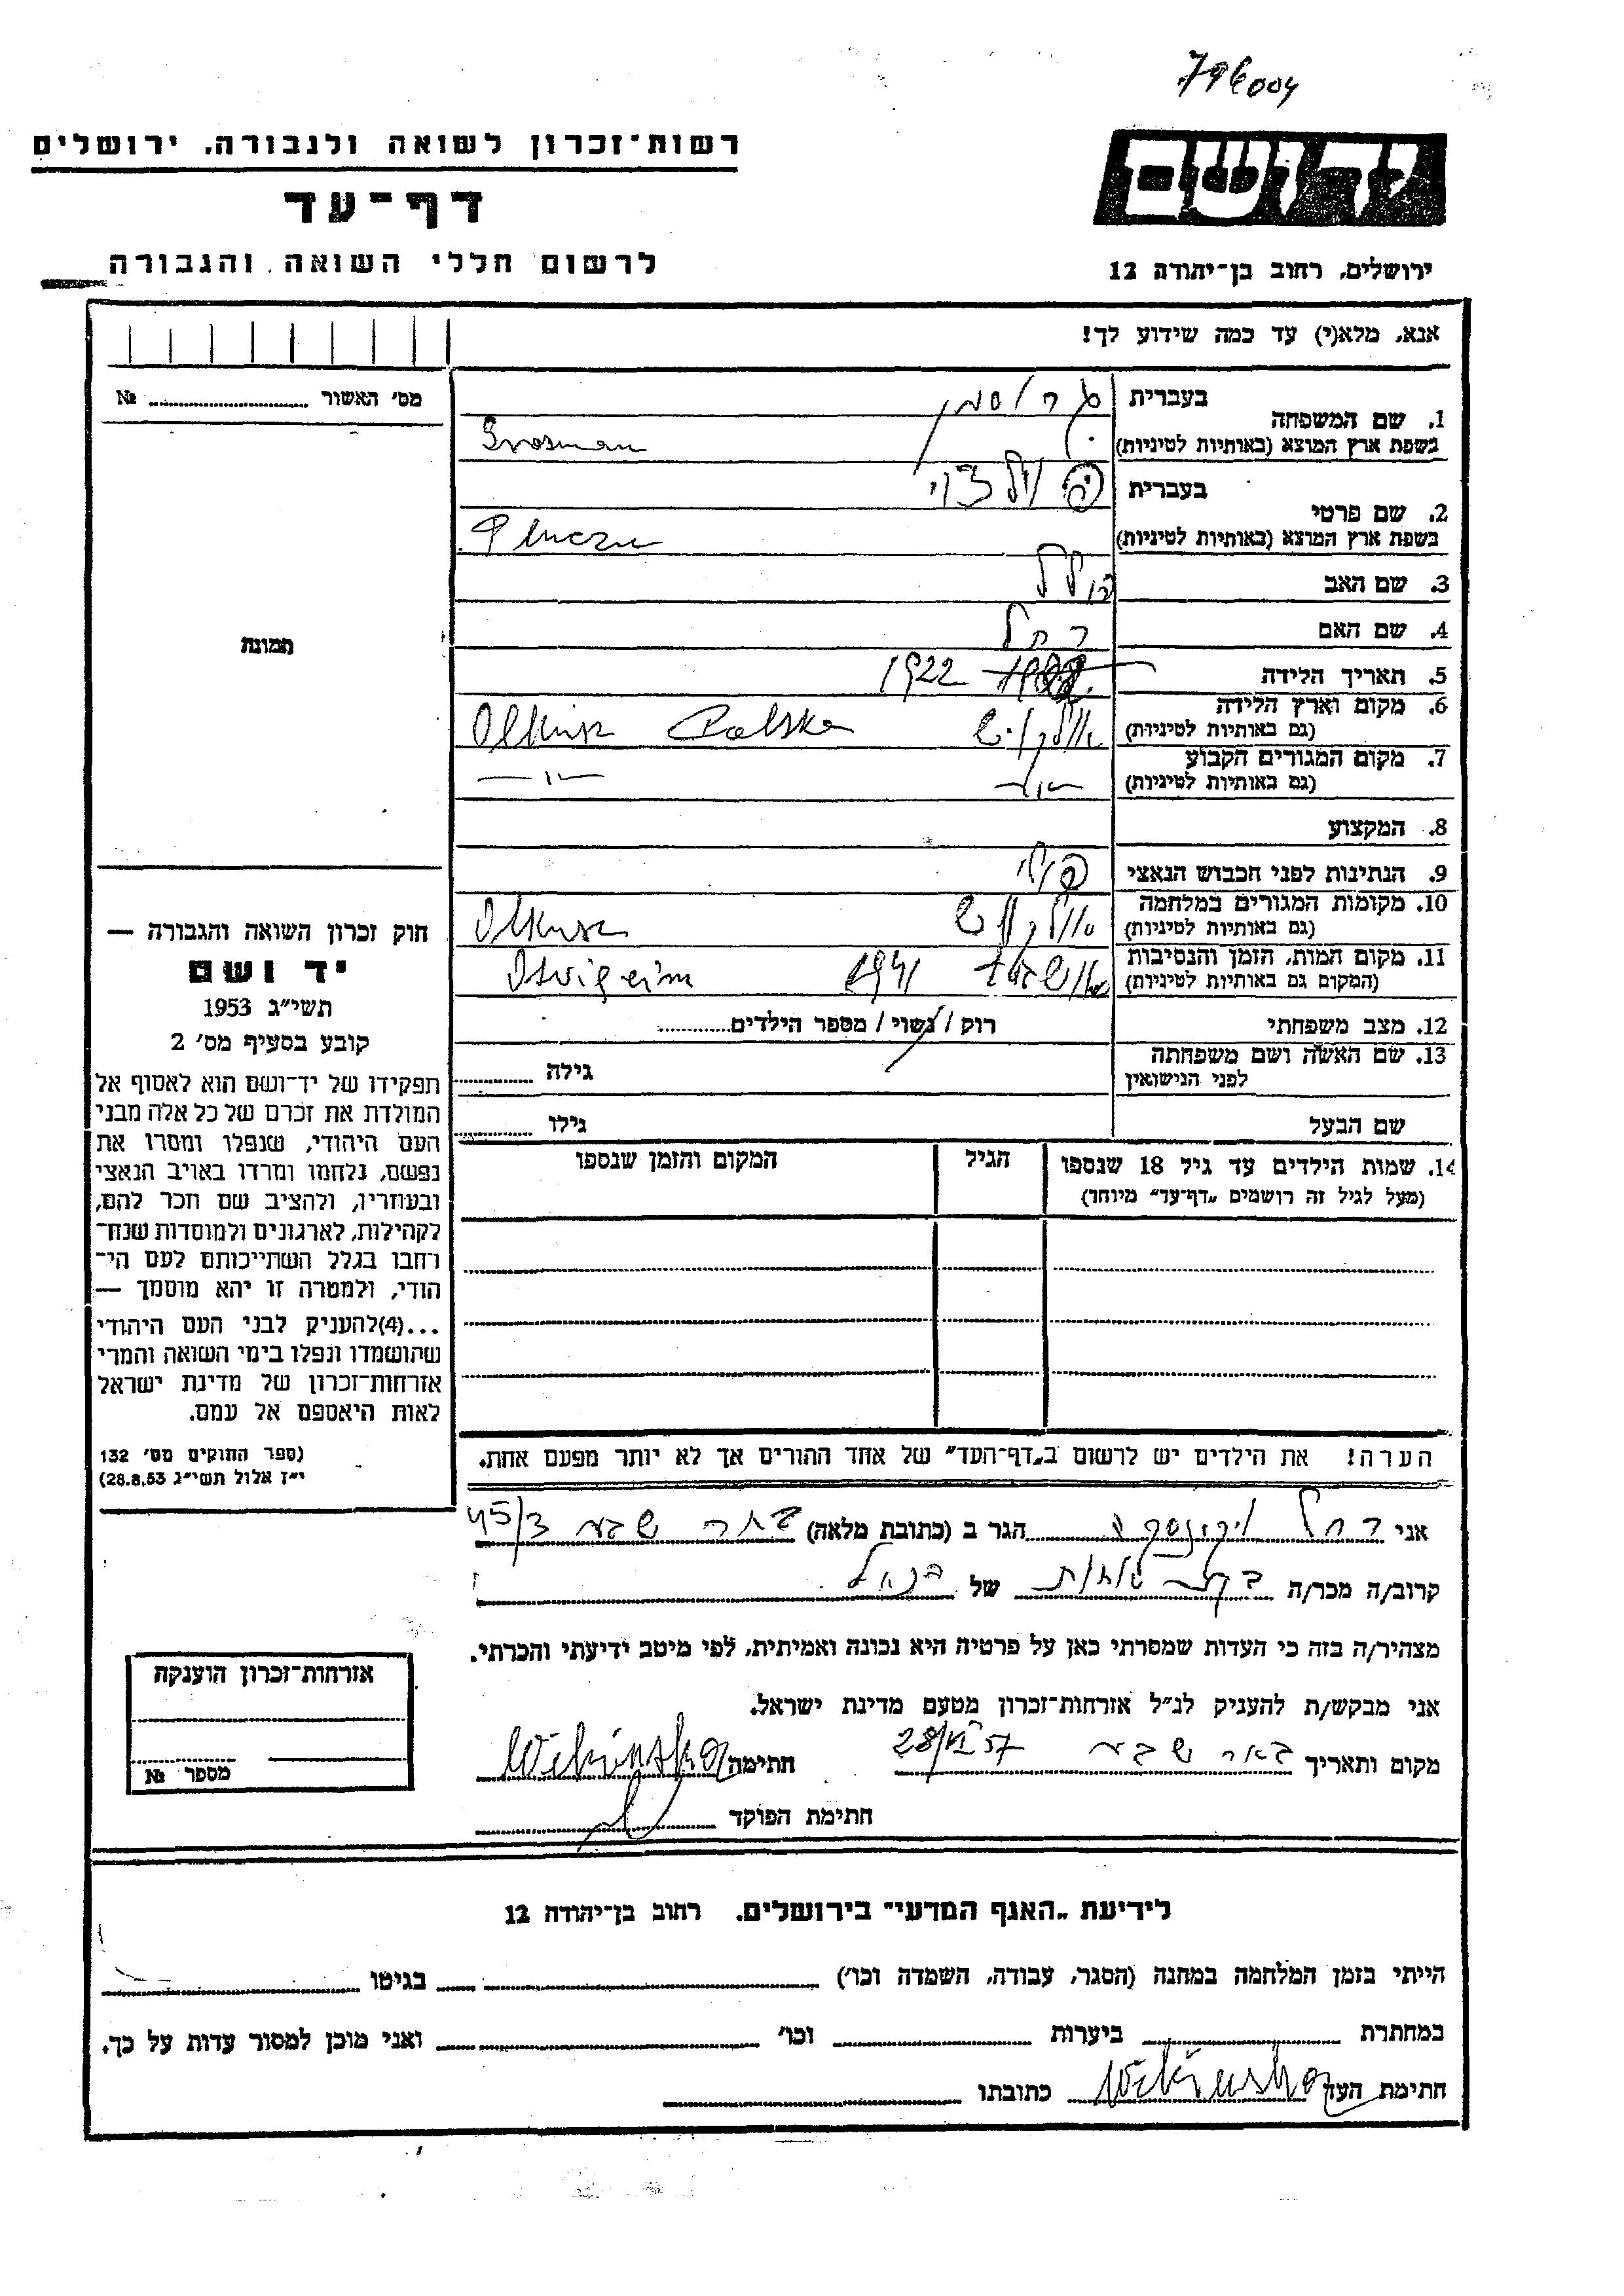 796004
רשות־זכרון לשואה ולגבורה, ירושלים
דף־עד
לרשום חללי השואה והגבורה
ידושם
ירושלים, רחוב בן־יהודה 12
אנא, מלא(י) עד כמה שידוע לך!
מס׳ האשור № 
1. שם המשפחה
בעברית גרוסמן
בשפת ארץ המוצא (באותיות לטיניות) Grosman
2. שם פרטי
בעברית
בשפת ארץ המוצא (באותיות לטיניות)
3. שם האב
4. שם האם רחל
5. תאריך הלידה 1922
6. מקום וארץ הלידה
(גם באותיות לטיניות) אולקוש Olkusz Polska
7. מקום המגורים הקבוע
(גם באותיות לטיניות) —״— —״—
8. המקצוע
9. הנתינות לפני הכבוש הנאצי פולני
10. מקומות המגורים במלחמה
(גם באותיות לטיניות) אולקוש Olkusz
11. מקום המות, הזמן והנסיבות
(המקום גם באותיות לטיניות) 1941
12. מצב משפחתי רוק / נשוי / מספר הילדים
13. שם האשה ושם משפחתה
לפני הנישואין גילה
שם הבעל גילו
14. שמות הילדים עד גיל 18 שנספו
(מעל לגיל זה רושמים „דף־עד״ מיוחד)
הגיל
המקום והזמן שנספו
הערה! את הילדים יש לרשום ב„דף־העד״ של אחד ההורים אך לא יותר מפעם אחת.
תמונה
חוק זכרון השואה והגבורה —
יד ושם
תשי״ג 1953
קובע בסעיף מס׳ 2
תפקידו של יד־ושם הוא לאסוף אל
המולדת את זכרם של כל אלה מבני
העם היהודי, שנפלו ומסרו את
נפשם, נלחמו ומרדו באויב הנאצי
ובעוזריו, ולהציב שם וזכר להם,
לקהילות, לארגונים ולמוסדות שנח־
רחבו בגלל השתייכותם לעם הי־
הודי, ולמטרה זו יהא מוסמך —
...(4)להעניק לבני העם היהודי
שהושמדו ונפלו בימי השואה והמרי
אזרחות־זכרון של מדינת ישראל
לאות היאספם אל עמם.
(ספר החוקים מס׳ 132
י״ז אלול תשי״ג 28.8.53)
אני רחל הגר ב (כתובת מלאה) באר שבע 45/3
קרוב/ה מכר/ה של
מצהיר/ה בזה כי העדות שמסרתי כאן על פרטיה היא נכונה ואמיתית, לפי מיטב ידיעתי והכרתי.
אני מבקש/ת להעניק לנ״ל אזרחות־זכרון מטעם מדינת ישראל.
מקום ותאריך באר שבע 28/VI 57 חתימה
חתימת הפוקד
אזרחות־זכרון הוענקה
מספר №
לידיעת „האגף המדעי״ בירושלים, רחוב בן־יהודה 12
הייתי בזמן המלחמה במחנה (הסגר, עבודה, השמדה וכו׳) בגיטו
במחתרת ביערות וכו׳ ואני מוכן למסור עדות על כך.
חתימת העד כתובתו